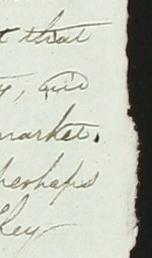 that
and
market.
perhaps
Key